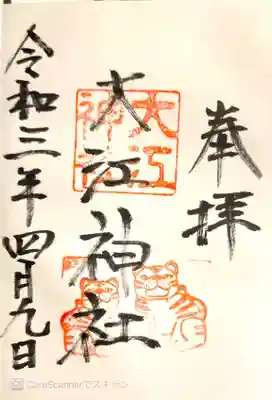 奉拝
大江神社
大江神社
令和三年四月九日
CamScannerでスキャン